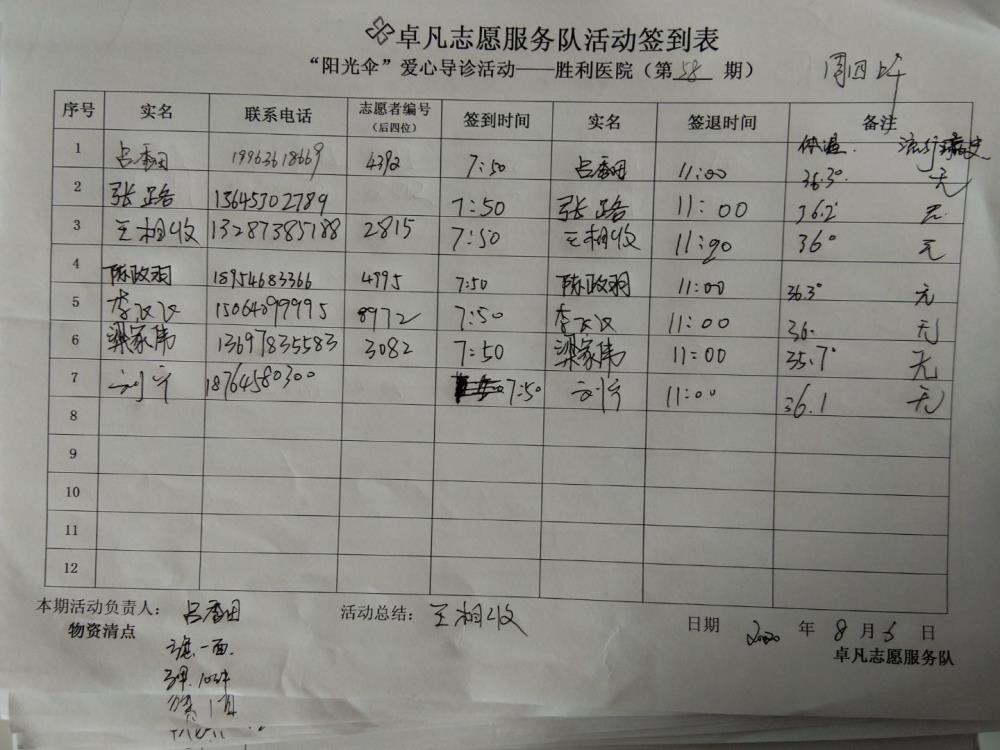 卓凡志愿服务队活动签到表
“阳光伞”爱心导诊活动——胜利医院（第 58 期） 周四上午
序号 实名 联系电话 志愿者编号（后四位） 签到时间 实名 签退时间 备注
体温. 流行病史
1 吕香田 19963618669 4392 7:50 吕香田 11:00 36.3° 无
2 张路 13645302789 7:50 张路 11:00 36.2° 无
3 王相收 13287385188 2815 7:50 王相收 11:00 36° 无
4 陈政羽 18954683366 4995 7:50 陈政羽 11:00 36.3° 无
5 李 15064099995 8972 7:50 李 11:00 36. 无
6 梁家伟 13697835583 3082 7:50 梁家伟 11:00 35.7° 无
7 刘宁 18764580300 7:50 刘宁 11:00 36.1 无
8
9
10
11
12
本期活动负责人： 吕香田 活动总结： 王相收 日期 2020 年 8 月 6 日
物资清点 卓凡志愿服务队
旗一面.